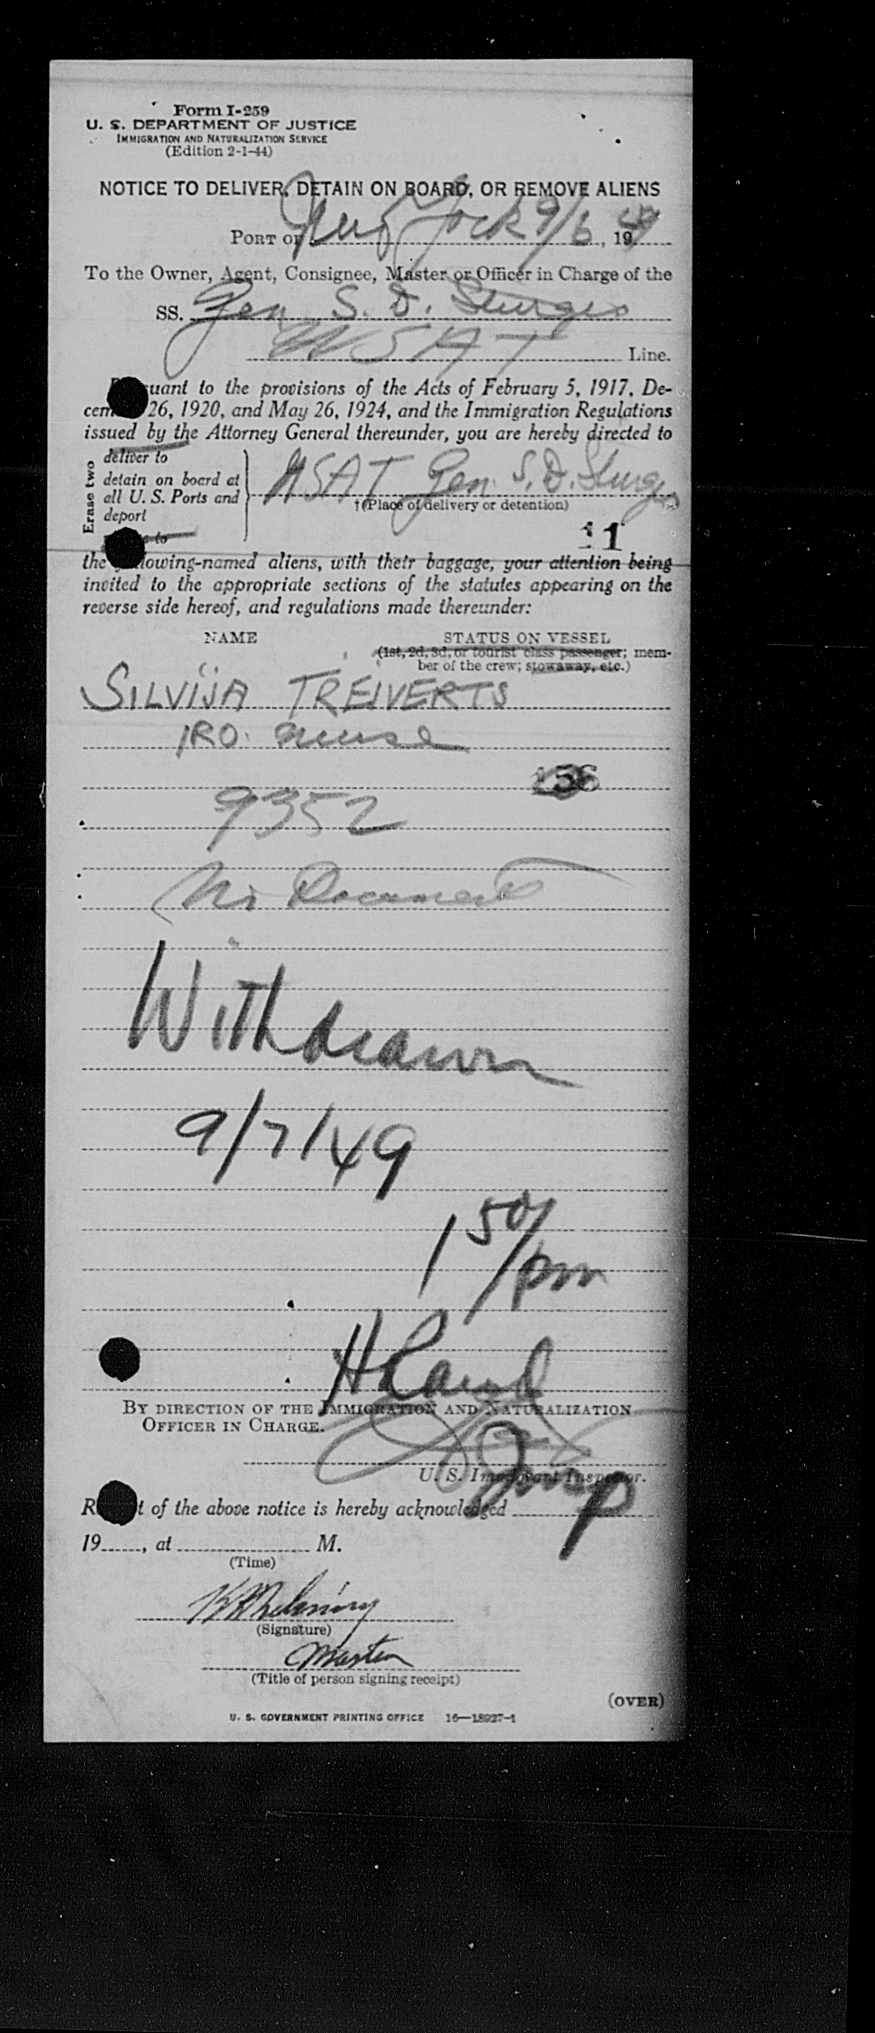 Form I-259
U. S. DEPARTMENT OF JUSTICE
IMMIGRATION AND NATURALIZATION SERVICE
(Edition 2-1-44)
NOTICE TO DELIVER, DETAIN ON BOARD, OR REMOVE ALIENS
PORT OF New York 9/6, 1949
To the Owner, Agent, Consignee, Master or Officer in Charge of the
SS. Gen S. D. Sturgis
USAT Line.
Pursuant to the provisions of the Acts of February 5, 1917, De-
cember 26, 1920, and May 26, 1924, and the Immigration Regulations
issued by the Attorney General thereunder, you are hereby directed to
Erase two
deliver to
detain on board at
all U. S. Ports and
deport
USAT Gen. S. D. Sturgis
†(Place of delivery or detention)
11
the following-named aliens, with their baggage, your attention being
invited to the appropriate sections of the statutes appearing on the
reverse side hereof, and regulations made thereunder:
NAME STATUS ON VESSEL
(1st, 2d, 3d, or tourist class passenger; mem-
ber of the crew; stowaway, etc.)
SILVIJA TREIVERTS
IRO. nurse
156
9352
No Documents
Withdrawn
9/7/49
1 50/pm
H Rand
BY DIRECTION OF THE IMMIGRATION AND NATURALIZATION
OFFICER IN CHARGE.
Insp
U. S. Immigrant Inspector.
Receipt of the above notice is hereby acknowledged
19, at M.
(Time)
(Signature)
Master
(Title of person signing receipt)
(OVER)
U. S. GOVERNMENT PRINTING OFFICE 16—18927-1